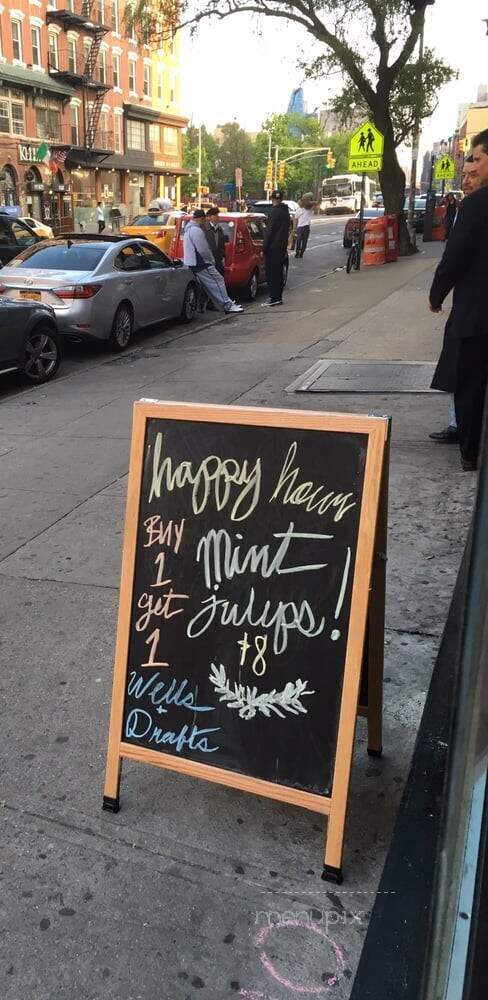 happy hour
Buy
1
get
1
Mint
Juleps!
$8
Wells
+
Drafts
AHEAD
menupix